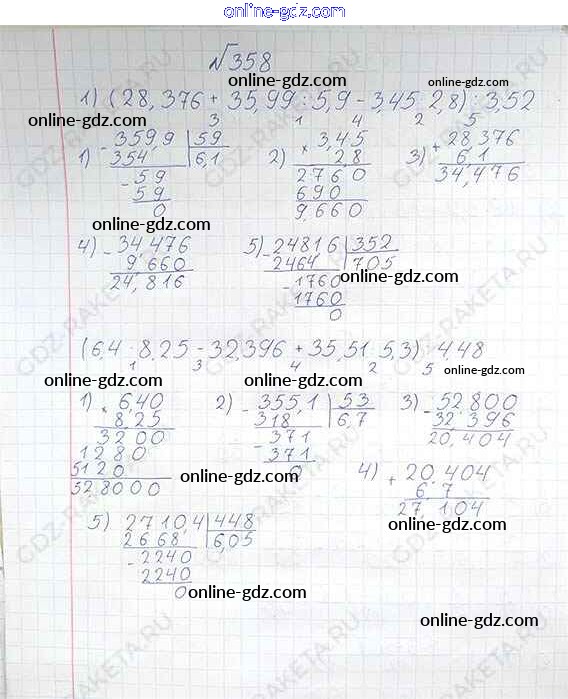 online-gdz.com
√358
online-gdz.com
1) (28,376 + 35,99 : 5,9 - 3,45 · 2,8) : 3,52
online-gdz.com
online-gdz.com
3 1 4 2 5
1) - 359,9 | 59
354 | 6,1
- 59
59
0
2) × 3,45
2,8
2760
690
9,660
3) + 28,376
6,1
34,476
online-gdz.com
online-gdz.com
4) - 34,476
9,660
24,816
5) - 24816 | 352
2464 | 705
- 1760
1760
0
online-gdz.com
(6,4 · 8,25 - 32,396 + 35,51 : 5,3) : 4,48
1 3 4 2 5
online-gdz.com
online-gdz.com
online-gdz.com
1) × 6,40
8,25
3200
1280
5120
52,8000
2) - 355,1 | 53
318 | 6,7
- 371
371
0
3) - 52,800
32,396
20,404
online-gdz.com
4) + 20,404
6,7
27,104
5) 2710,4 | 448
2668 | 6,05
- 2240
2240
0
online-gdz.com
online-gdz.com
online-gdz.com
GDZ-RAKETA.RU